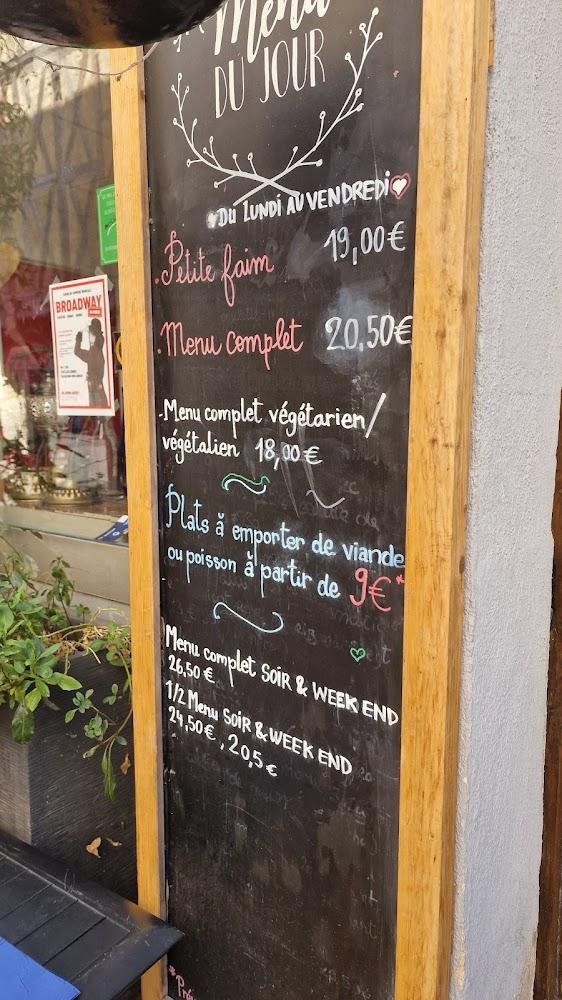 Menu
DU JOUR
DU LUNDI AU VENDREDI
. Petite faim 19,00€
. Menu complet 20,50€
. Menu complet végétarien/
végétalien 18,00€
Plats à emporter de viande
ou poisson à partir de 9€*
Menu complet SOIR & WEEK END
26,50€
1/2 Menu SOIR & WEEK END
24,50€, 20,5€
BROADWAY